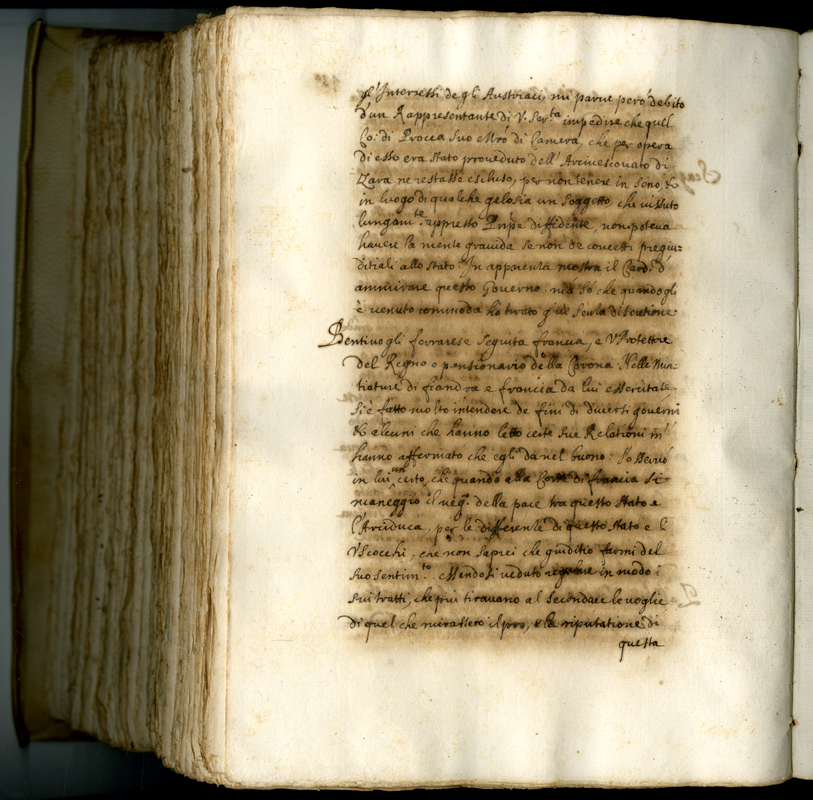 gl'Interessi de gli Austriaci, mi parve però debito
d'un Rappresentante di V. Ser.ta impedire che quel
Co: di Procea suo Mro di Camera, che per opera
di esso era stato proveduto dell'Arcivescovato di
Zara ne restasse escluso, per non tenere in seno, &
in luogo di qualche gelosia un soggetto, che vissuto
lungam.te appresso Prñpe diffidente, non poteva
havere la mente gravida se non de concetti pregiu=
ditiali allo stato. In apparenza mostra il Card. d'
ammirare questo Governo: ma sò che quando gli
è venuto commoda ha tirato senza discretione
Bentivogli ferrarese seguita francia, e V Protettore
del Regno e pensionario della Corona. Nelle Nun-
tiature di fiandra e francia da lui essercitate
si è fatto molto intendere de fini di diversi governi
& alcuni che hanno letto certe sue Relationi m'
hanno affermato che egli da nel buono: Io Servo
in lui un certo, che quando alla Corte di francia si
maneggiò il neg.o della pace tra questo Stato e
l'Arciduca, per le differenze di questo stato e li
Vscocchi, che non saprei che giuditio farmi del
suo sentim.to essendosi veduto regolare in modo i
sui tratti, che più tiravano al secondare le voglie
di quel che mirassero il pro, e la riputatione di
questa